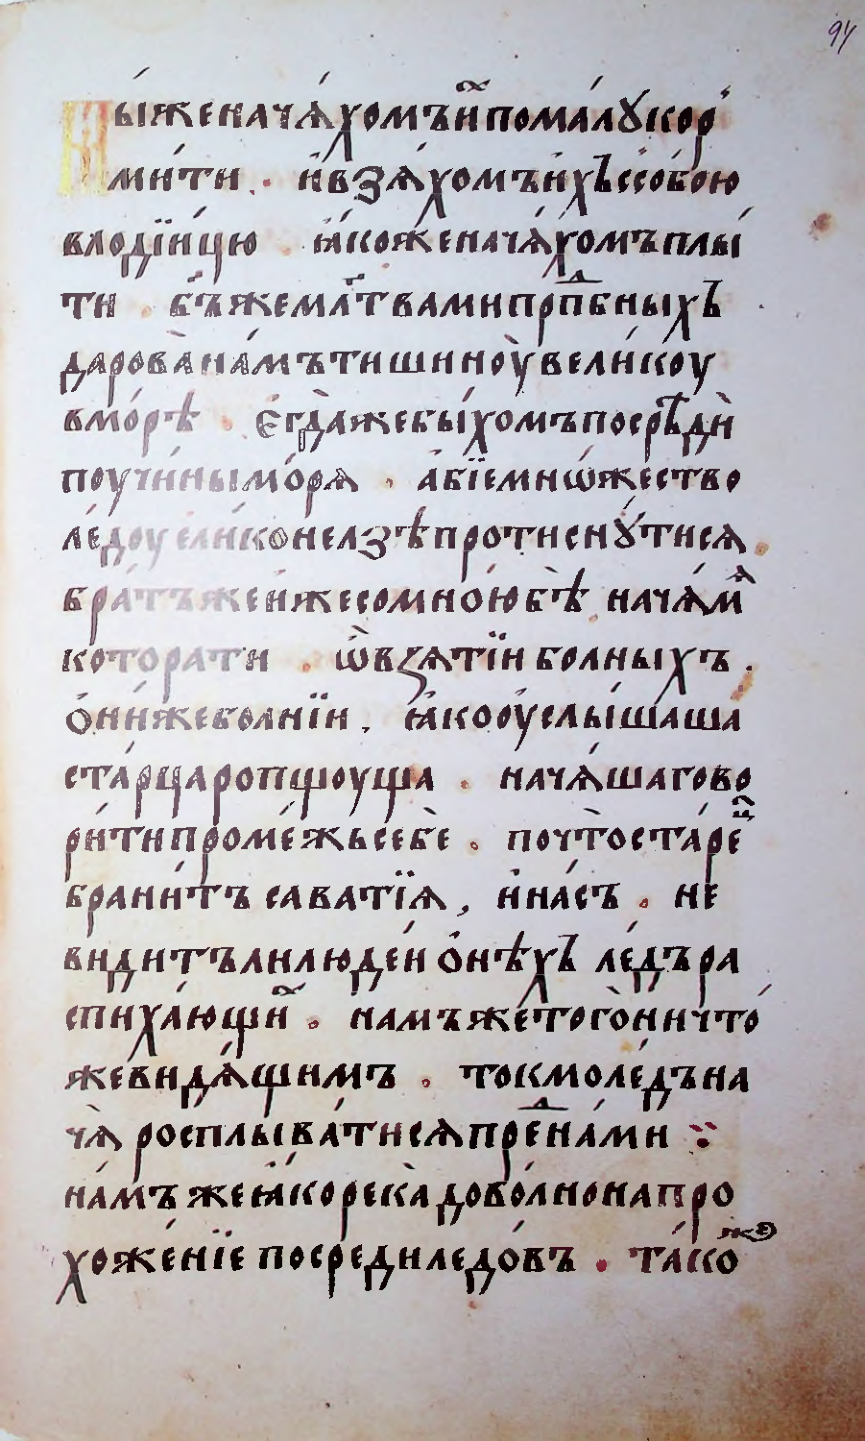 94
Мы́же нача́хомъ и҆̀ⷯ пома́лꙋ кор
ми́ти . и҆взѧ́хомъ и҆́хъ с собо́ю
в лоді́йцю . ꙗ҆́коже нача́хомъ плы́
ти . бъ҃ же мл҃твами прпⷣбныхъ
дарова̀ на́мъ тишиноу̀ вели́коу
в мо́рѣ . Є҆гда̀же бы́хомъ посрѣ́дѝ
поучи́ны мо́рѧ . а҆́бїе мнѡ́жество
ле́доу ели́ко не лзѣ̀ проти снꙋ́тисѧ .
бра́тъже и҆́же со мно́ю бѣ̀ нача́ мѧ
которати . ѡ҆ взѧ́тїи болныхъ .
ѻ҆ни́же болнїи , ꙗ҆́ко оу҆слы́шаша
ста́рца ропщоуща . нача́ша гово
ри́ти проме́жь себѐ . почто̀ ста́рецъ
брани́тъ саватїѧ , и҆ на́съ . не
видитъ ли люде́й о҆́нѣхъ ле́дъ ра
спиха́ющиⷯ . намъ же того̀ ничто́
же ви́дѧ́щимъ . токмо ле́дъ на
чѧ̀ росплыва́тисѧ преⷣ на́ми :
на́мъ же ꙗ҆́ко река̀ дово́лно на про
хоже́нїе посреди ледо́въ . та́коⷤ